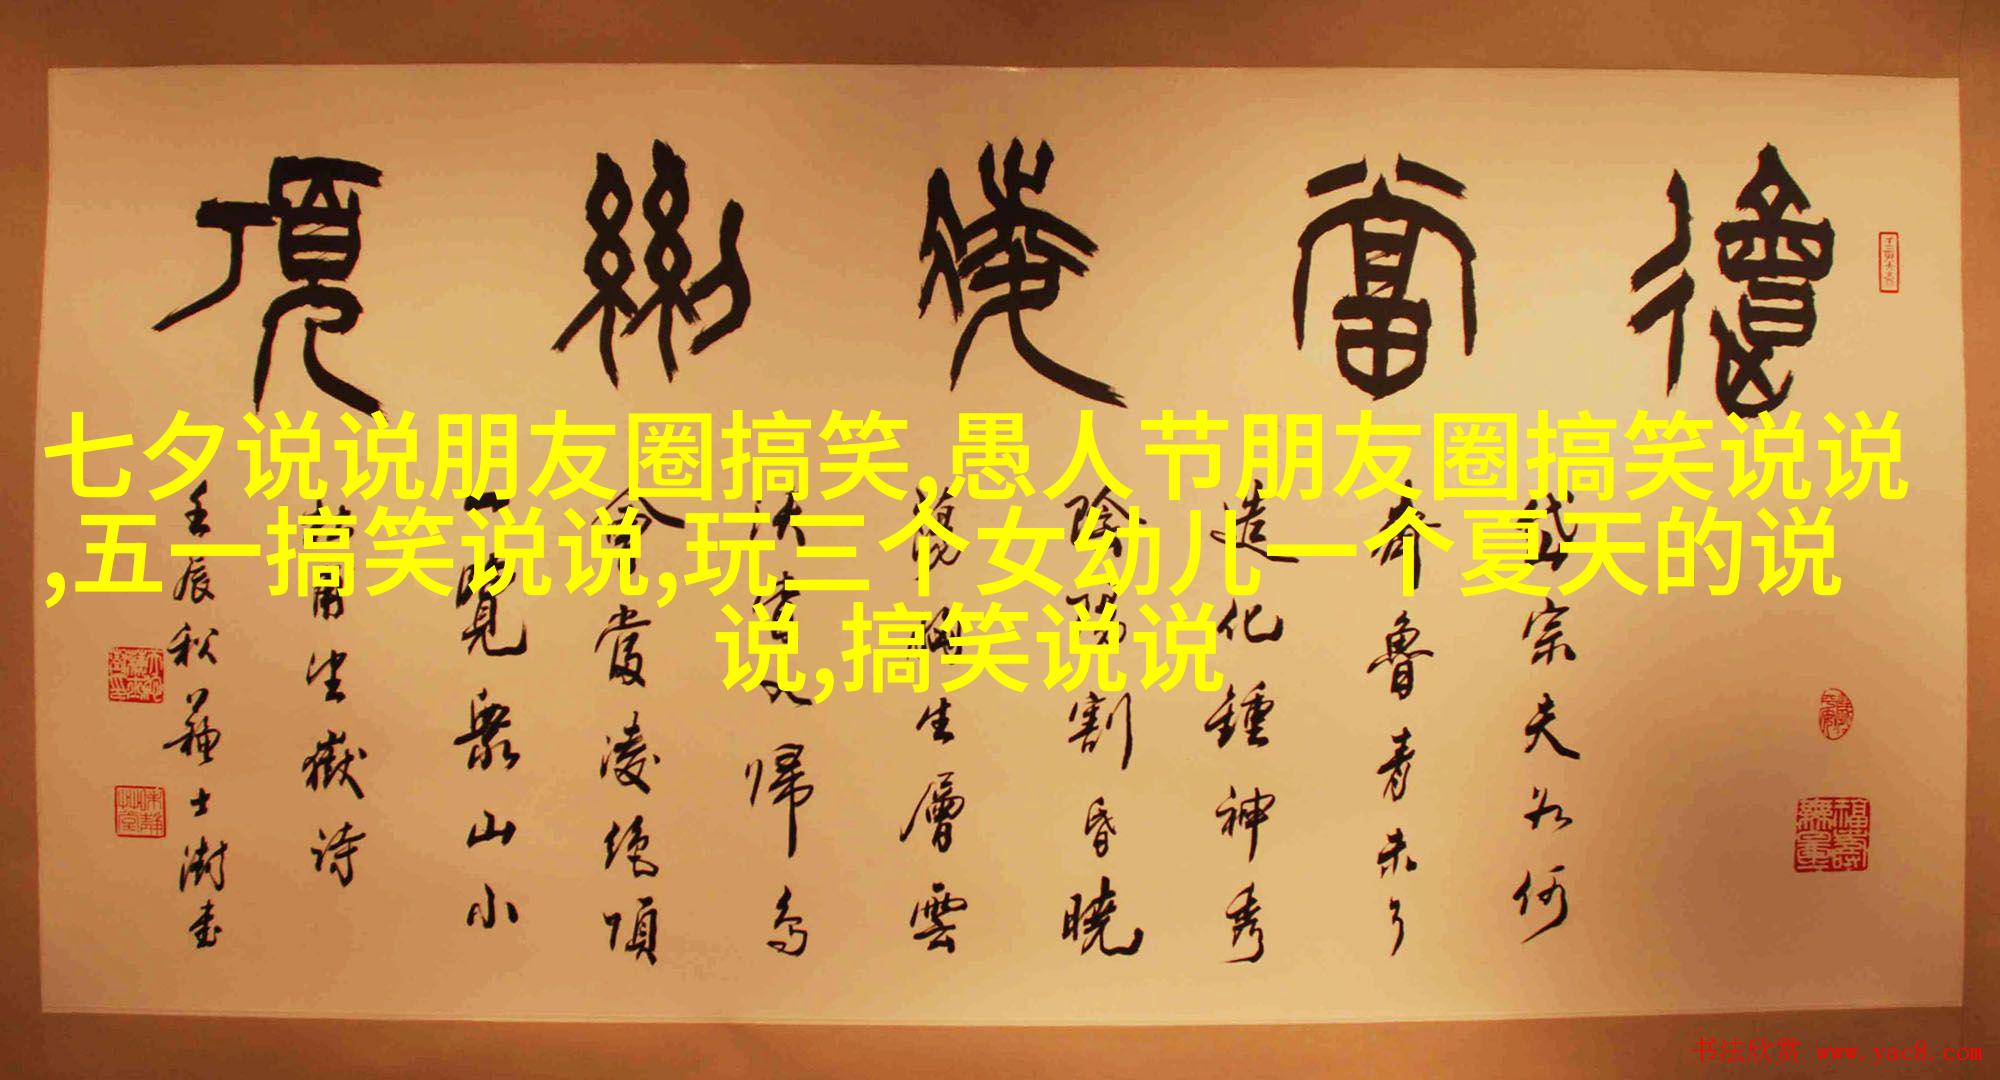 會當凌絕頂
岱宗夫如何
齊魯青未了
造化鍾神秀
陰陽割昏曉
蕩胸生層雲
決眥入歸鳥
會當凌絕頂
一覽眾山小
杜甫望嶽詩
壬辰秋蘇士澍書
福壽無量
七夕说说朋友圈搞笑,愚人节朋友圈搞笑说说
,五一搞笑说说,玩三个女幼儿一个夏天的说
说,搞笑说说
书法欣赏 www.yac8.com